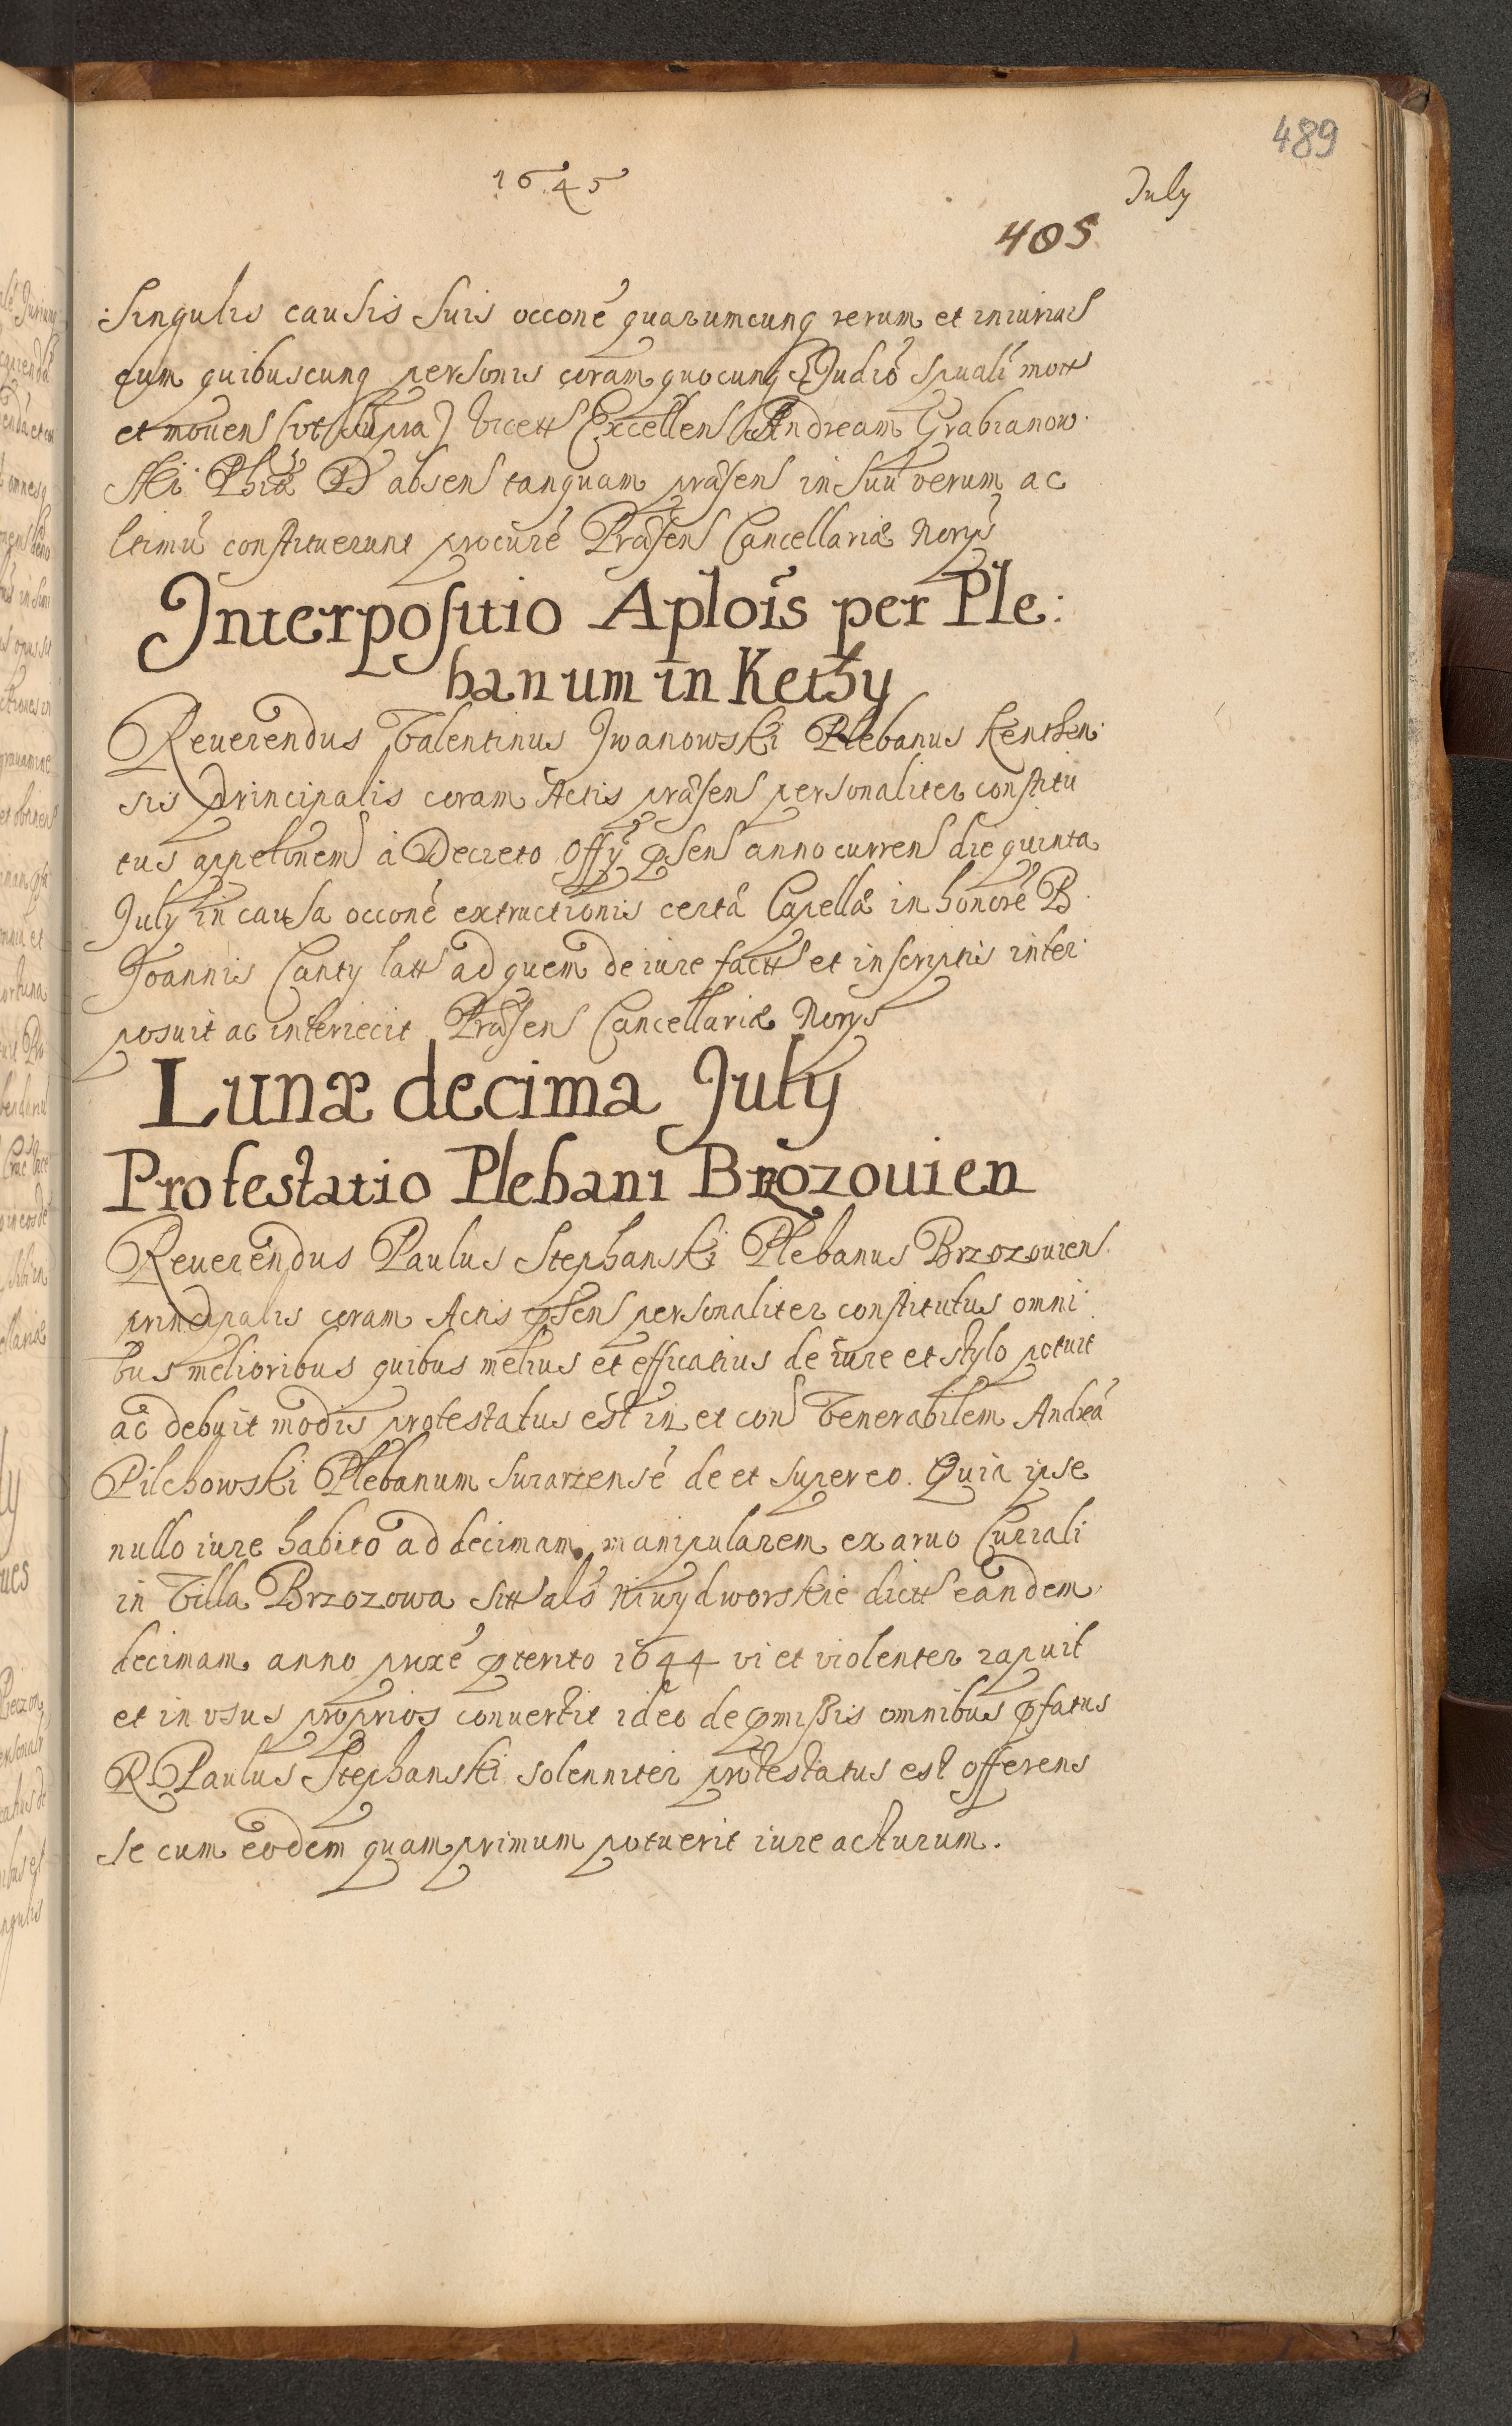 489
1645
July
405
Singulis causis suis occone quarumcunq rerum et iniurias
cum quibuscunq personis coram quocunq Iudio spuali mott
et mouens (vt supra) Excellens Andream Grabianow
ski Phiæ D absens tanquam præsens in suu verum ac
ltimu constituerunt procure Præsens Cancellariæ Norys
Interpositio Aplois per Ple:
banum in Kethy
Reuerendus Valentinus Jwanowski Plebanus Kenthen
sis principalis coram Actis præsens personaliter constitu
tus appelonem à Decreto Offy psens anno currens die quinta
July in causa occone extructionis certæ Capellæ in honore B
Joannis Canty latt ad quem de iure factt et in scriptis inter
posuit ac interiecit Præsens Cancellariæ Norys
Lunæ decima July
Protestatio Plebani Brzozouien
Reuerendus Paulus Stephanski Plebanus Brzozouiens
principalis coram Actis psens personaliter constitutus omni
bus melioribus quibus melius et efficatius de iure et stylo potuit
ac debuit modis protestatus est in et con Venerabilem Andreã
Pilchowski Plebanum de et super eo. Quia ipse
nullo iure habito ad decimam manipularem ex aruo Curiali
in Villa Brzozowa sitt als Niwy dworskie dictt eandem
decimam anno proxe pterito 1644 vi et violenter rapuit
et in vsus proprios conuertit ideo de pmissis omnibus pfatus
R Paulus Stephanski solenniter protestatus est offerens
se cum eodem quamprimum potuerit iure acturum.